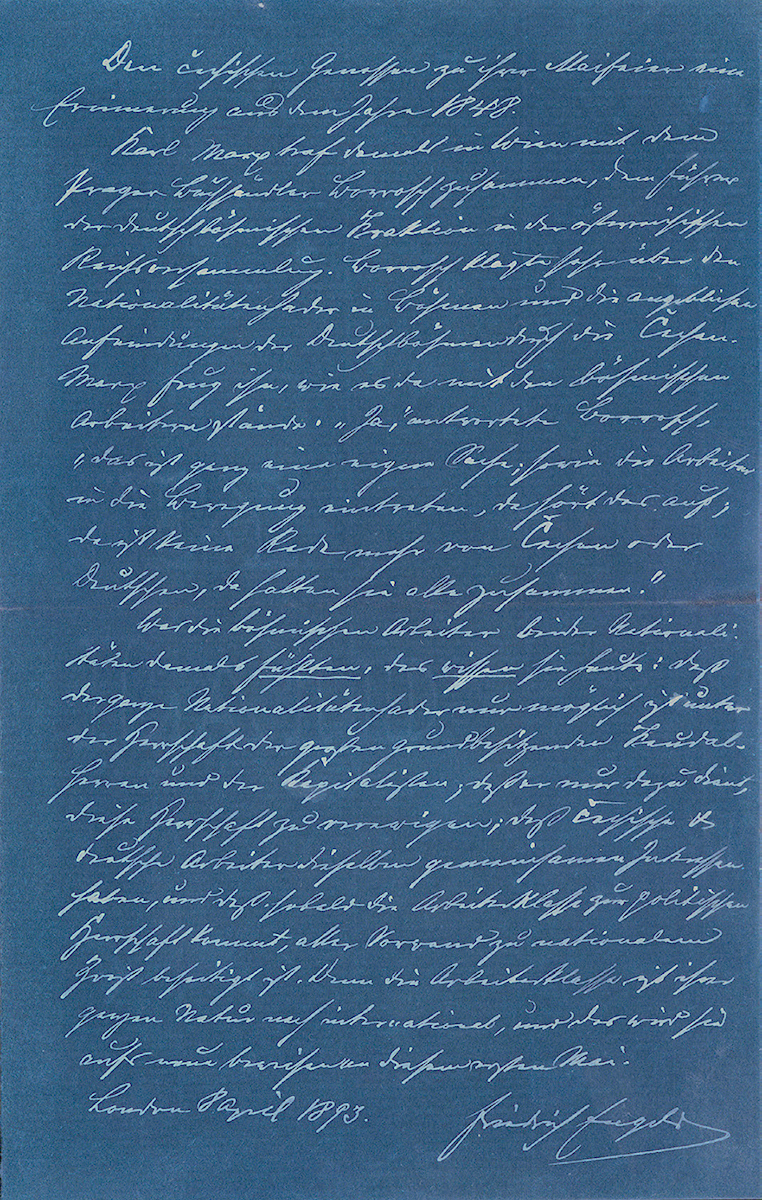 Den čechischen Genossen zu ihrer Maifeier eine
Erinnerung aus dem Jahre 1848.
Karl Marx traf damals in Wien mit dem
Prager Buchhändler Borrosch zusammen, dem Führer
der deutschböhmischen Fraktion in der österreichischen
Reichsversammlung. Borrosch klagte sehr über den
Nationalitätenhader in Böhmen und die angeblichen
Anfeindungen der Deutschböhmen durch die Čechen.
Marx frug ihn, wie es da mit den böhmischen
Arbeitern stände. „Ja," antwortete Borrosch,
„das ist ganz eine eigne Sache; sowie die Arbeiter
in die Bewegung eintreten, da hört das auf,
da ist keine Rede mehr von Čechen oder
Deutschen, da halten sie alle zusammen."
Was die böhmischen Arbeiter beider Nationali-
täten damals fühlten, das wissen sie heute: daß
der ganze Nationalitätenhader nur möglich ist unter
der Herrschaft der großen grundbesitzenden Feudal-
herren und der Kapitalisten; daß er nur dazu dient,
diese Herrschaft zu verewigen; daß čechische &
deutsche Arbeiter dieselben gemeinsamen Interessen
haben, und daß, sobald die Arbeiterklasse zur politischen
Herrschaft kommt, aller Vorwand zu nationalem
Zwist beseitigt ist. Denn die Arbeiterklasse ist ihrer
ganzen Natur nach international, und das wird sie
aufs neue beweisen an diesem ersten Mai.
London 8 April 1893.
Friedrich Engels